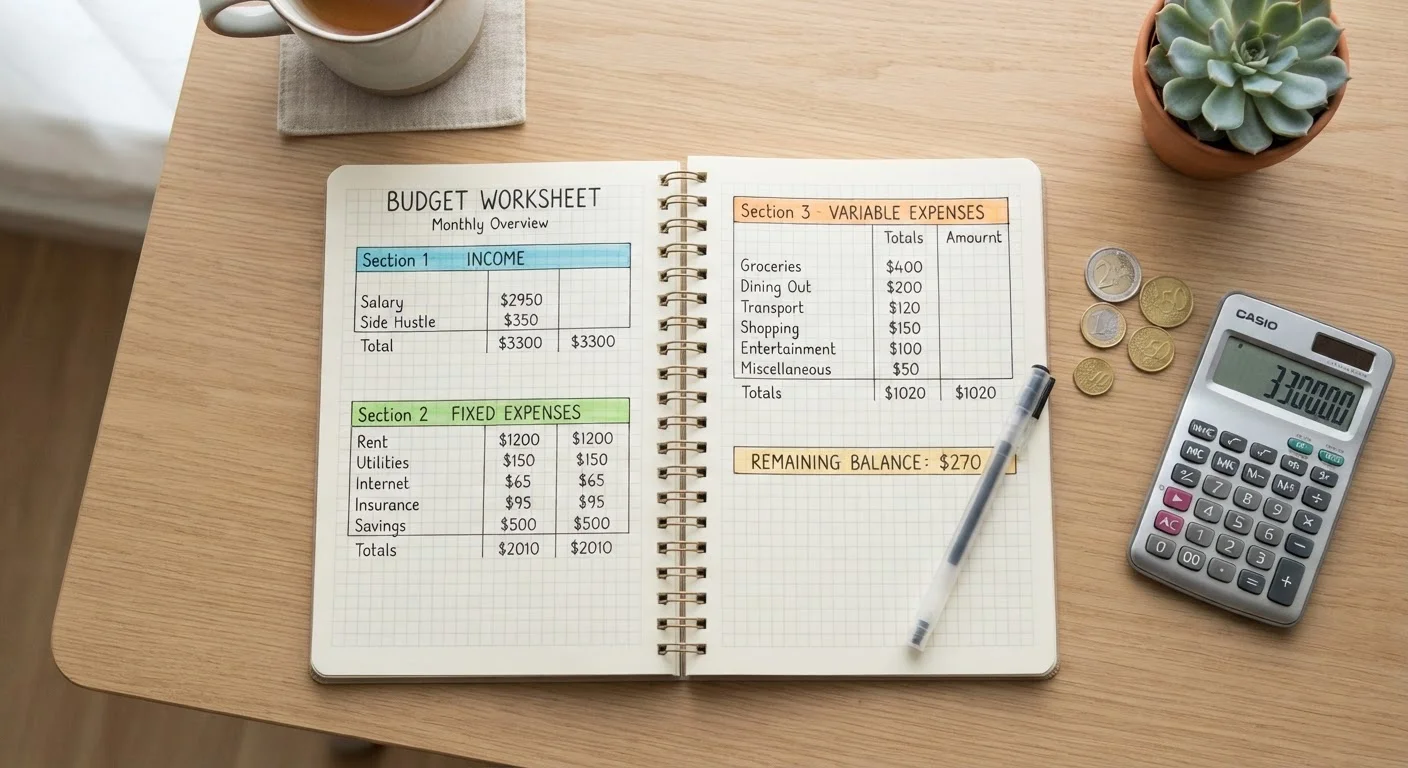 BUDGET WORKSHEET
Monthly Overview
Section 1 INCOME
Salary $2950
Side Hustle $350
Total $3300 $3300
Section 2 FIXED EXPENSES
Rent $1200 $1200
Utilities $150 $150
Internet $65 $65
Insurance $95 $95
Savings $500 $500
Totals $2010 $2010
Section 3 - VARIABLE EXPENSES
Totals Amournt
Groceries $400
Dining Out $200
Transport $120
Shopping $150
Entertainment $100
Miscellaneous $50
Totals $1020 $1020
REMAINING BALANCE: $270
CASIO
330000
7 8 9 ÷
4 5 6 ×
AC 1 2 3 −
0 00 · = +